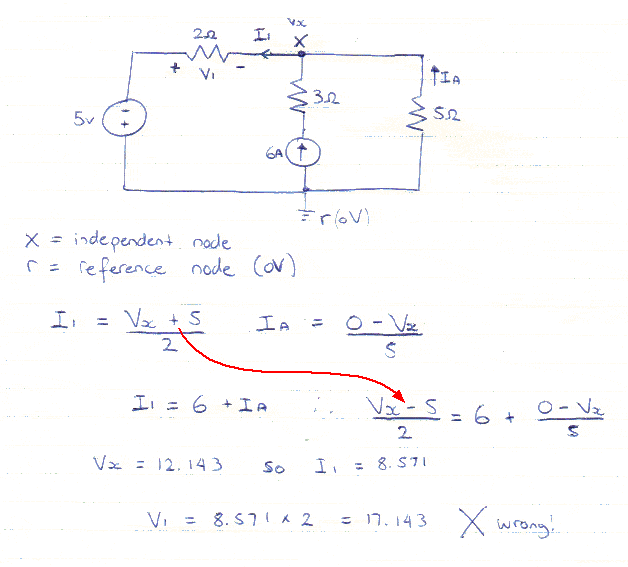 Vx
2Ω I₁ X
+ V₁ -
↑IA
3Ω
5Ω
5v
-
+
6A ↑
r(0V)
X = independent node
r = reference node (0V)
I₁ = Vx + 5 / 2 IA = 0 - Vx / 5
I₁ = 6 + IA ∴ Vx - 5 / 2 = 6 + 0 - Vx / 5
Vx = 12.143 so I₁ = 8.571
V₁ = 8.571 x 2 = 17.143 X wrong!